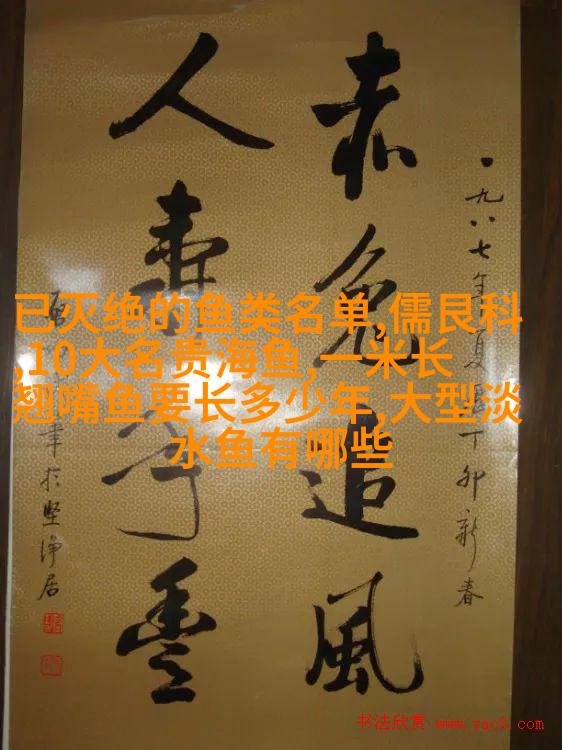 赤兔追風
人壽年豐
一九八七年夏曆丁卯新春
於堅淨居
已灭绝的鱼类名单,儒艮科
,10大名贵海鱼,一米长
翘嘴鱼要长多少年,大型淡
水鱼有哪些
书法欣赏 www.yac8.com